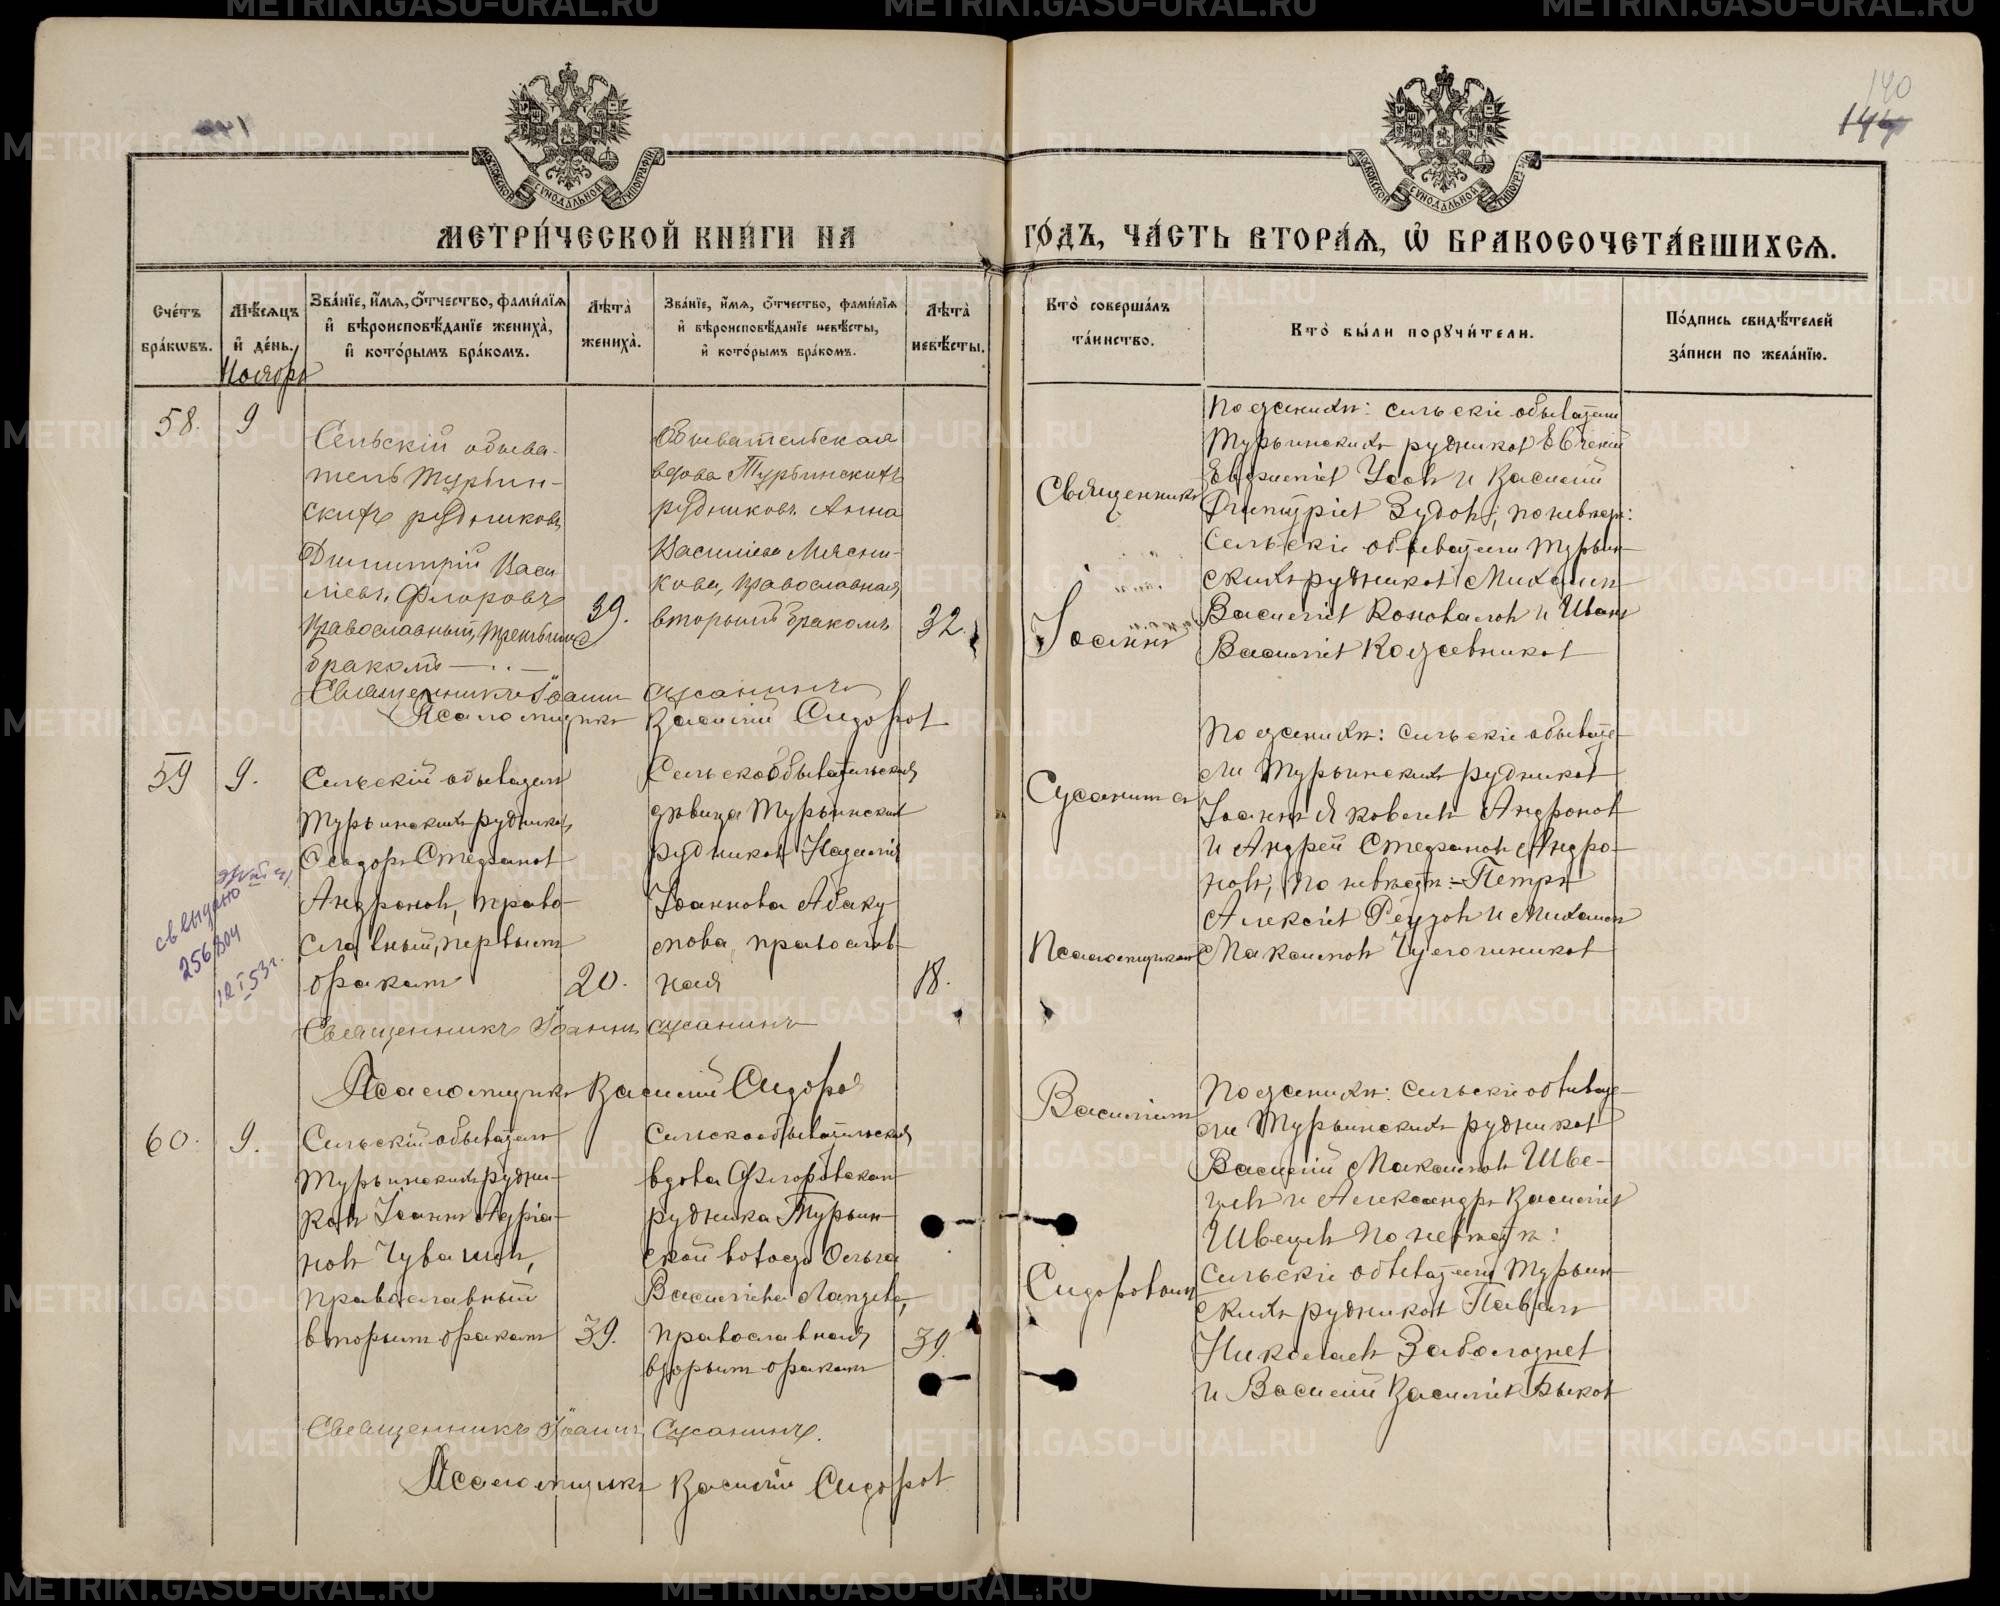 140
144
МОСКОВСКОЙ СѴНОДАЛЬНОЙ ТИПОГРАФІИ
МОСКОВСКОЙ СѴНОДАЛЬНОЙ ТИПОГРАФІИ
МЕТРИ́ЧЕСКОЙ КНИ́ГИ НА
ГО́ДЪ, ЧА́СТЬ ВТОРА́Ѧ, Ѽ БРАКОСОЧЕТА́ВШИХСѦ.
Сче́тъ бра́кωвъ.
Мѣ́сѧцъ и҆ де́нь.
Зва́нїе, и҆́мѧ, ѻ҆́тчество, фами́лїѧ и҆ вѣроисповѣ́данїе жениха̀, и҆ кото́рымъ бра́комъ.
Лѣта̀ жениха̀.
Зва́нїе, и҆́мѧ, ѻ҆́тчество, фами́лїѧ и҆ вѣроисповѣ́данїе невѣ́сты, и҆ кото́рымъ бра́комъ.
Лѣта̀ невѣ́сты.
Кто̀ соверша́лъ та́инство.
Кто̀ бы́ли порꙋчи́тели.
По́дпись свидѣ́телей за́писи по жела́нїю.
Ноябрь
58.
9
Сельскій обыва-
тель Турьин-
скихъ рудниковъ
Димитрій Васи
ліевъ Флоровъ
православный, третьимъ
бракомъ
39.
Обывательская
вдова Турьинскихъ
рудниковъ Анна
Василіева Мясни-
кова, православная
вторымъ бракомъ
32.
Священникъ
Іоаннъ
По женихѣ: сельскіе обыватели
Турьинскихъ рудниковъ Евгеній
Евфиміевъ Усовъ и Василій
Димитріевъ Зудовъ; по невѣстѣ:
Сельскіе обыватели Турьин-
скихъ рудниковъ Михаилъ
Василіевъ Коноваловъ и Иванъ
Василіевъ Кожевниковъ
Священникъ Іоаннъ Сусанинъ
Псаломщикъ Василій Сидоровъ
59
9.
Сельскій обыватель
Турьинскихъ рудниковъ
Ѳеодоръ Стефановъ
Андроновъ, право-
славный, первымъ
бракомъ
20.
Сельскообывательская
дѣвица Турьинскихъ
рудниковъ Наталія
Іоаннова Абаку
мова, православ-
ная
18.
Сусанинъ
Псаломщикомъ
По женихѣ: сельскіе обывате-
ли Турьинскихъ рудниковъ
Іоаннъ Яковлевъ Андроновъ
и Андрей Стефановъ Андро-
новъ, по невѣстѣ: Петръ
Алексіевъ и Михаилъ
Максимовъ
св выдано
256804
12 I 53 г.
Священникъ Іоаннъ Сусанинъ
Псаломщикъ Василій Сидоровъ
60.
9.
Сельскій обыватель
Турьинскихъ рудни-
ковъ Іоаннъ Адріа-
новъ Чувашевъ,
православный
вторымъ бракомъ
39.
Сельскообывательская
вдова Фроловскаго
рудника Турьин-
ской волости Ольга
Василіева Лаптева,
православная
вторымъ бракомъ
39
Василіемъ
Сидоровымъ
По женихѣ: сельскіе обывате-
ли Турьинскихъ рудниковъ
Василій Максимовъ Шве-
цовъ и Александръ Василіевъ
Швецовъ по невѣстѣ:
Сельскіе обыватели Турьин-
скихъ рудниковъ Павелъ
Николаевъ Заболотнев
и Василій Василіевъ Быковъ
Священникъ Іоаннъ Сусанинъ.
Псаломщикъ Василій Сидоровъ
METRIKI.GASO-URAL.RU